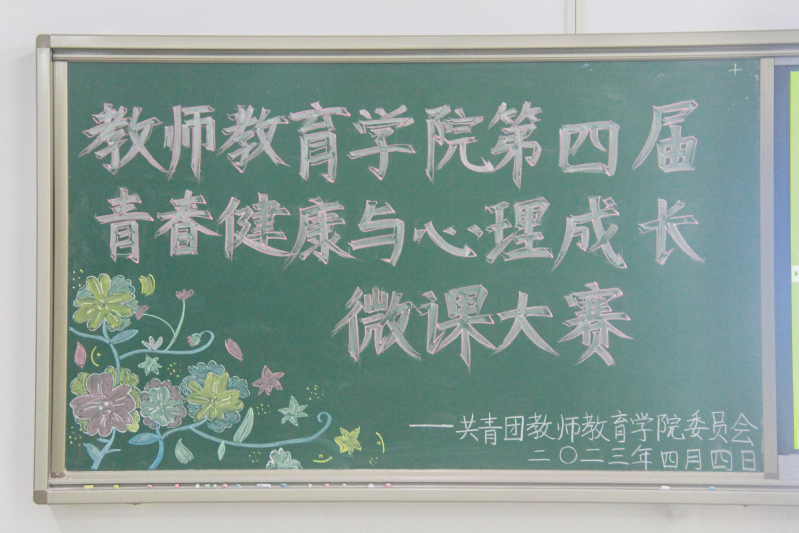 教师教育学院第四届
青春健康与心理成长
微课大赛
——共青团教师教育学院委员会
二〇二三年四月四日